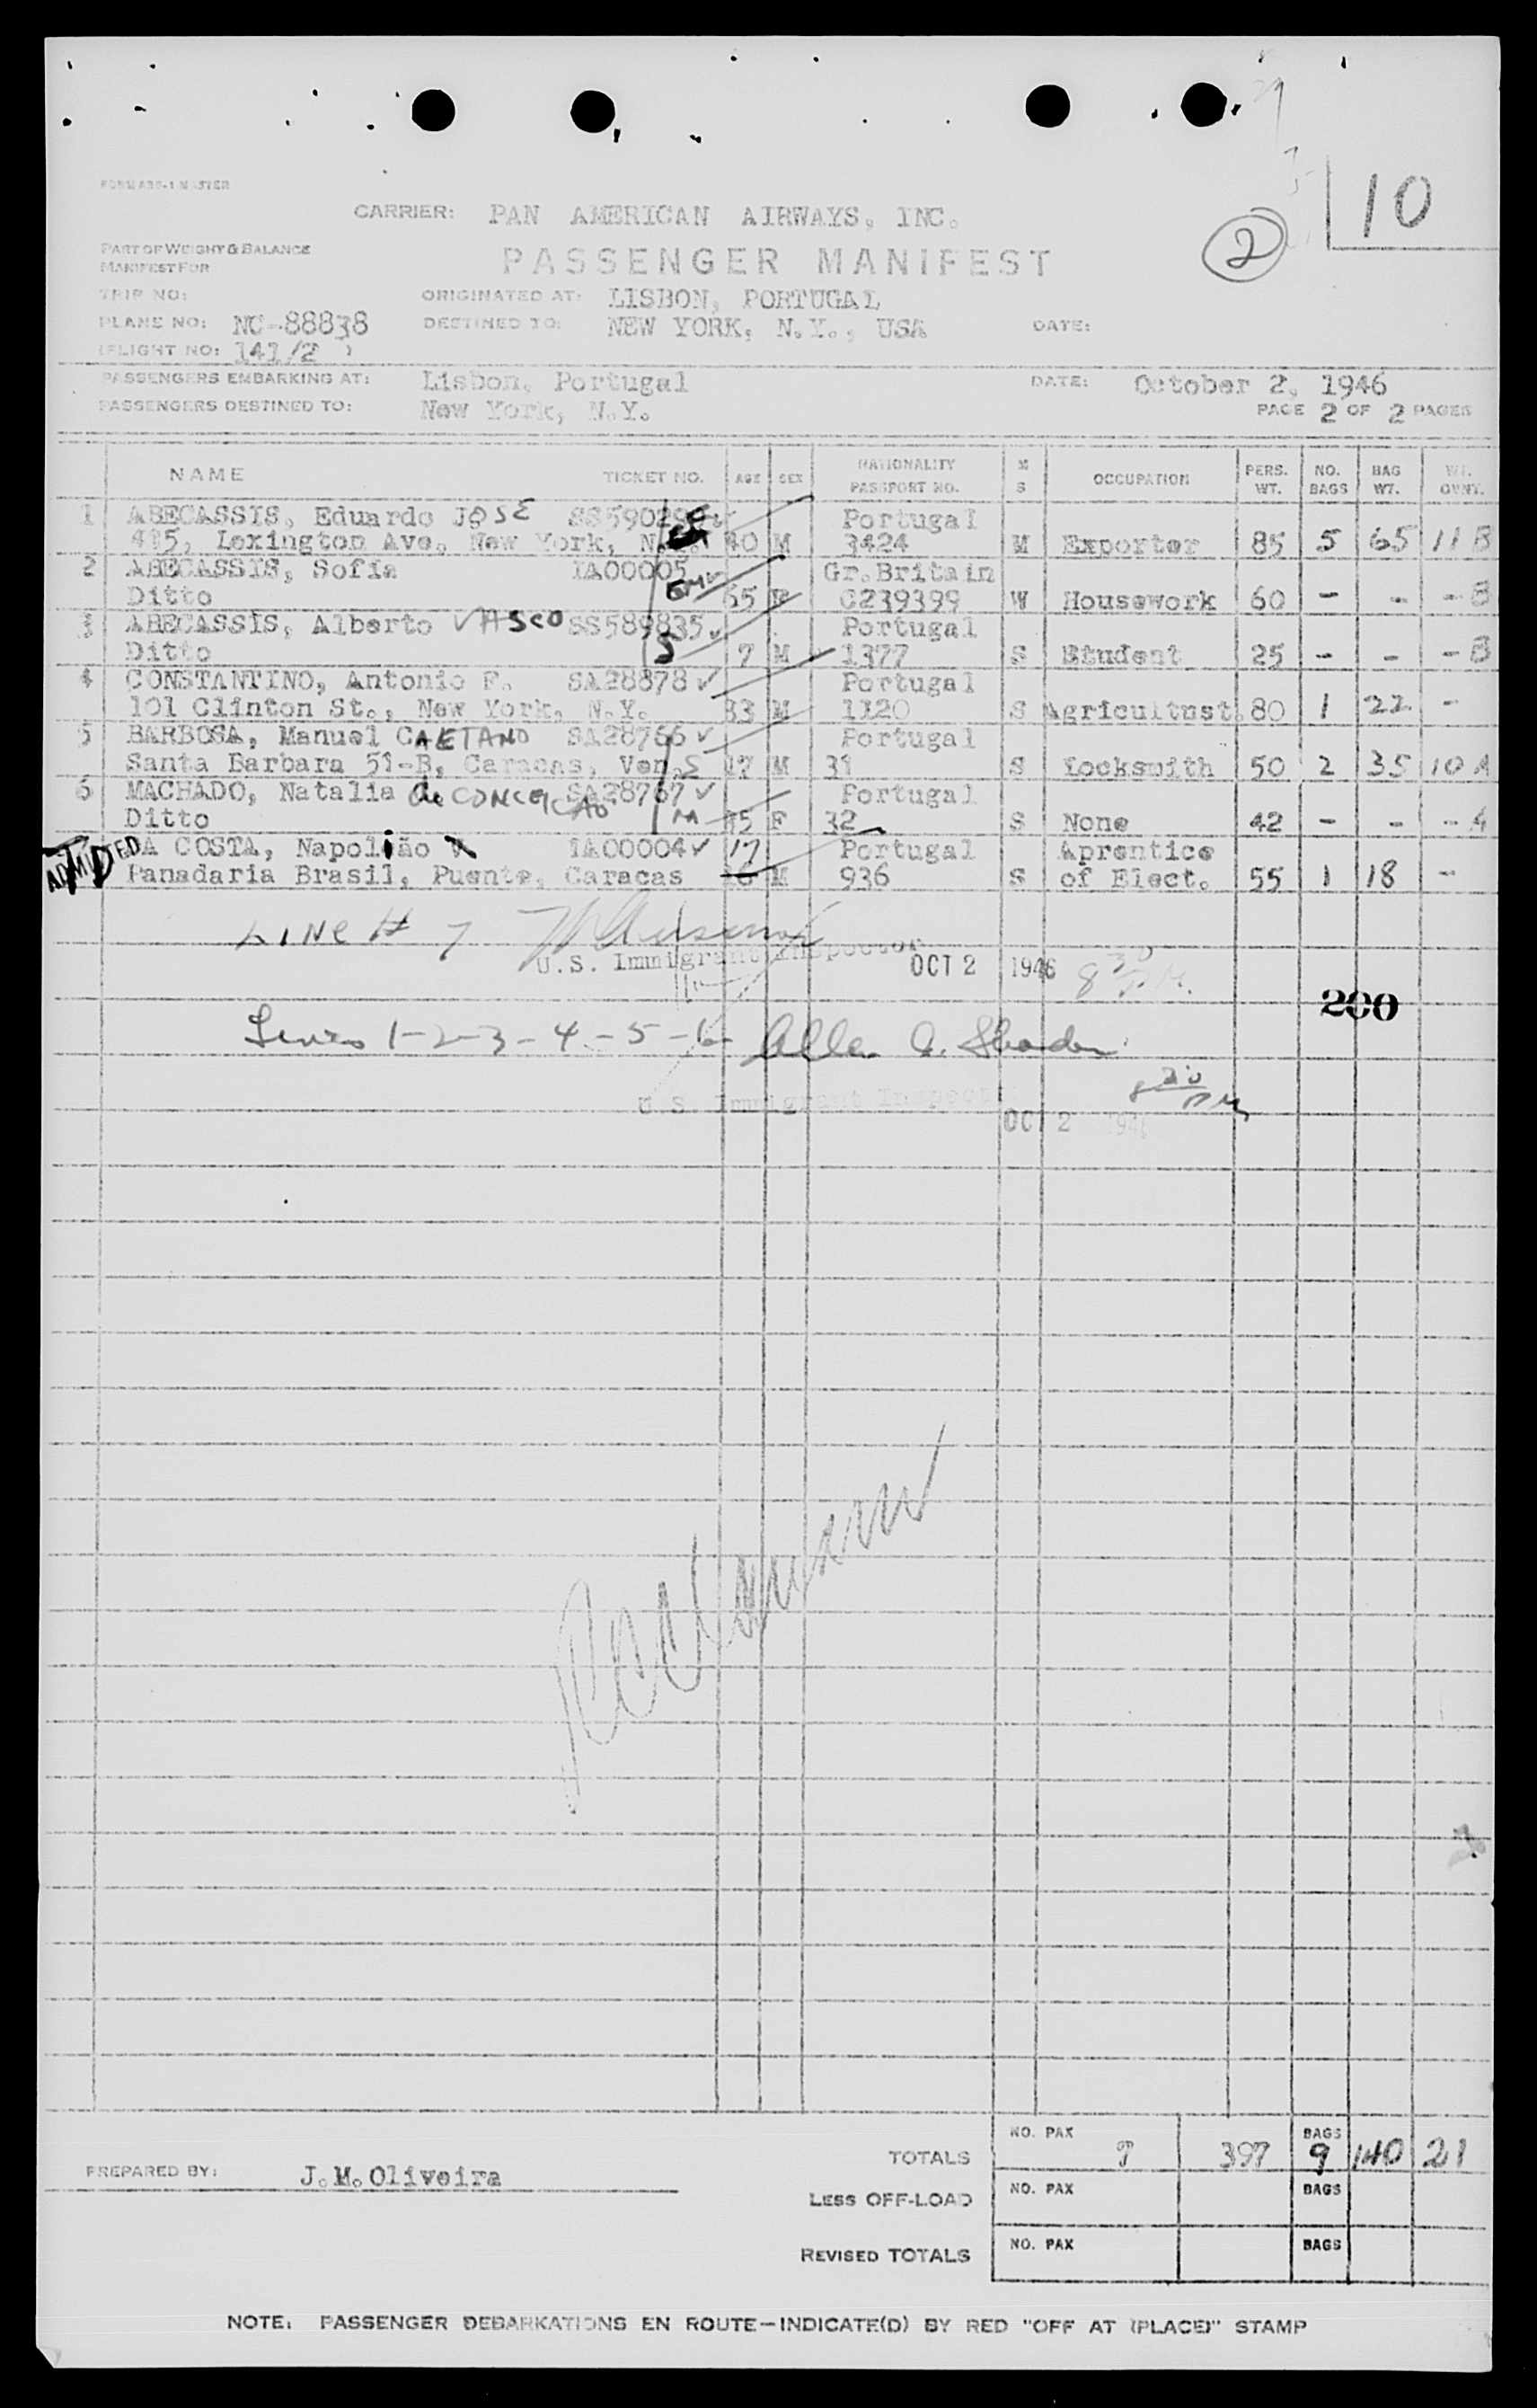 FORM ABS-1 MASTER
10
CARRIER: PAN AMERICAN AIRWAYS, INC.
2
PART OF WEIGHT & BALANCE
MANIFEST FOR
PASSENGER MANIFEST
TRIP NO: ORIGINATED AT: LISBON, PORTUGAL
PLANE NO: NC-88838 DESTINED TO: NEW YORK, N.Y., USA DATE:
(FLIGHT NO: 141/2 )
PASSENGERS EMBARKING AT: Lisbon, Portugal DATE: October 2, 1946
PASSENGERS DESTINED TO: New York, N.Y. PAGE 2 OF 2 PAGES
NAME TICKET NO. AGE SEX NATIONALITY PASSPORT NO. M S OCCUPATION PERS. WT. NO. BAGS BAG WT. WT. OVWT.
1 ABECASSIS, Eduardo JOSE Portugal
415, Lexington Ave. New York, 40 M 3424 M Exporter 85 5 65 11 B
2 ABECASSIS, Sofia IA00005 Gr.Britain
Ditto 65 F C239399 W Housework 60 - - - B
3 ABECASSIS, Alberto VASCO SS589835 Portugal
Ditto S 7 M 1377 S Student 25 - - - B
4 CONSTANTINO, Antonio F. SA28878 Portugal
101 Clinton St., New York, N.Y. 33 M 1120 S Agricultust. 80 1 22 -
5 BARBOSA, Manuel CAETANO SA28766 Portugal
Santa Barbara 51-B, Caracas, Ven. S 17 M 31 S Locksmith 50 2 35 10 A
6 MACHADO, Natalia da CONCEICAO SA28767 Portugal
Ditto M F 32 S None 42 - - - A
ADMITTED DA COSTA, Napolião IA00004 17 Portugal Aprentice
Panadaria Brasil, Puente, Caracas 16 M 936 S of Elect. 55 1 18 -
LINE # 7
U.S. Immigrant Inspector OCT 2 1946 8 30 P.M.
200
Lines 1-2-3-4-5-6
U.S. Immigrant Inspect
8 30 PM
OCT 2 1946
TOTALS NO. PAX 7 397 BAGS 9 140 21
PREPARED BY: J.M.Oliveira
LESS OFF-LOAD NO. PAX BAGS
REVISED TOTALS NO. PAX BAGS
NOTE: PASSENGER DEBARKATIONS EN ROUTE—INDICATE(D) BY RED "OFF AT (PLACE)" STAMP